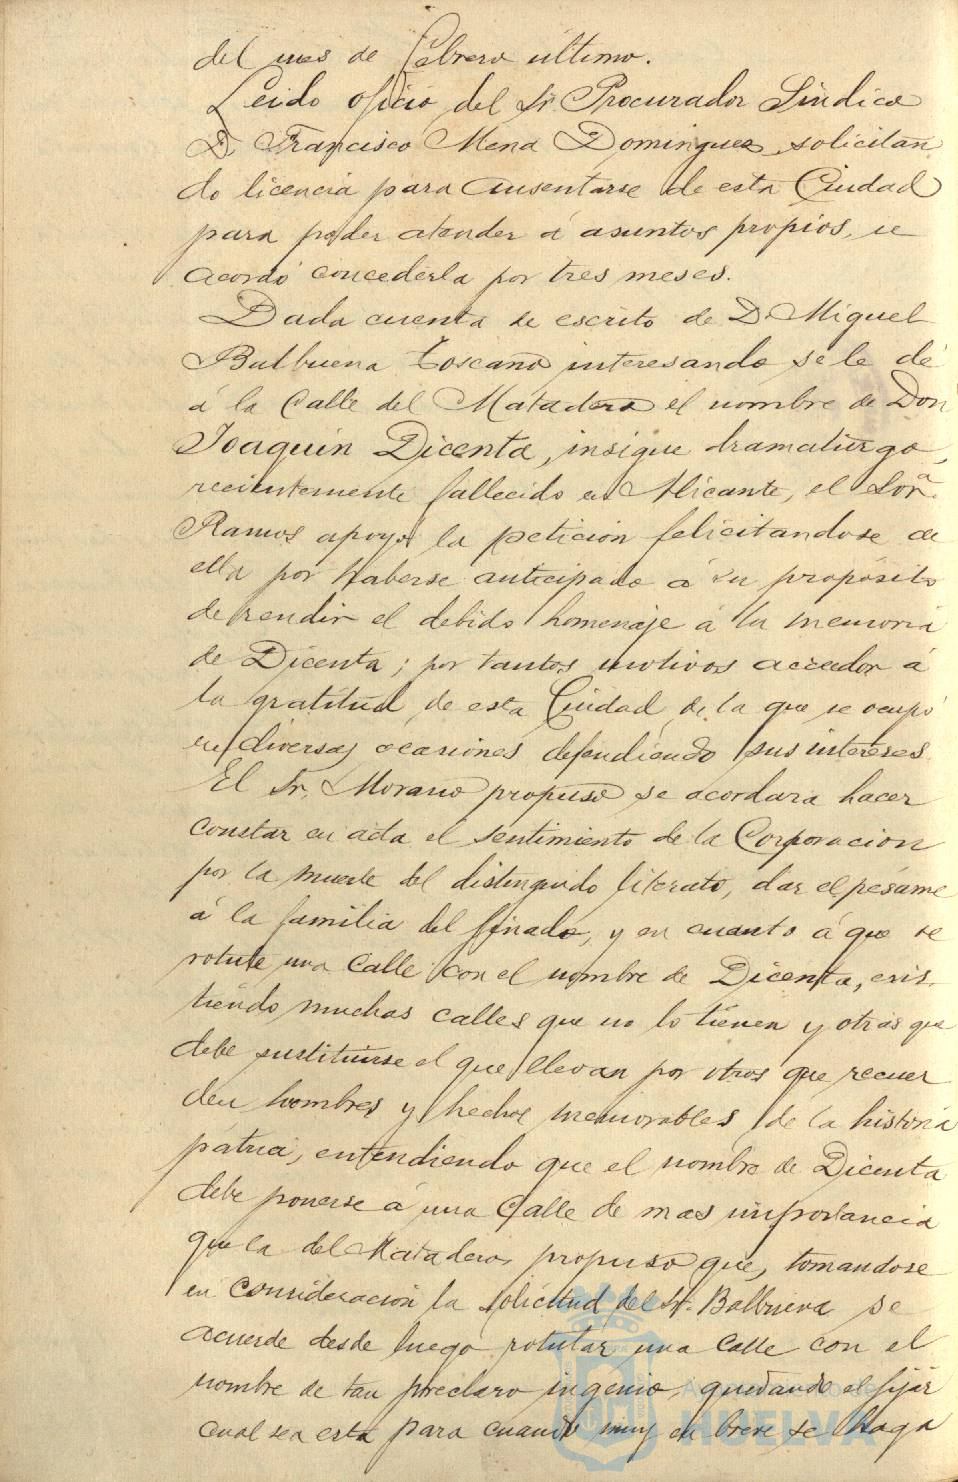 del mes de Febrero último.
Leido oficio del Sr. Procurador Síndico
D. Francisco Mena Dominguez, solicitan
do licencia para ausentarse de esta Ciudad
para poder atender á asuntos propios, se
acordó concederla por tres meses.
Dada cuenta de escrito de D. Miguel
Balbuena Toscano interesando se le dé
á la Calle del Matadero el nombre de Don
Joaquín Dicenta, insigne dramaturgo,
recientemente fallecido en Alicante, el Sor.
Ramos apoyó la petición felicitandose de
ella por haberse anticipado á su propósito
de rendir el debido homenaje á la memoria
de Dicenta; por tantos motivos acreedor á
la gratitud de esta Ciudad de la que se ocupó
en diversas ocasiones defendiendo sus intereses.
El Sr. Morano propuso se acordara hacer
constar en acta el sentimiento de la Corporación
por la muerte del distinguido literato, dar el pésame
á la familia del finado, y en cuanto á que se
rotule una Calle con el nombre de Dicenta, exis-
tiendo muchas calles que no lo tienen y otras que
debe sustituirse el que llevan por otros que recuer
den hombres y hechos memorables de la historia
patria, entendiendo que el nombre de Dicenta
debe ponerse á una Calle de mas importancia
que la del Matadero, propuso que, tomandose
en consideración la solicitud del Sr. Balbuena se
acuerde desde luego rotular una Calle con el
nombre de tan preclaro ingenio, quedando el fijar
cual sea esta para cuando muy en breve se haga
Ayuntamiento de
HUELVA